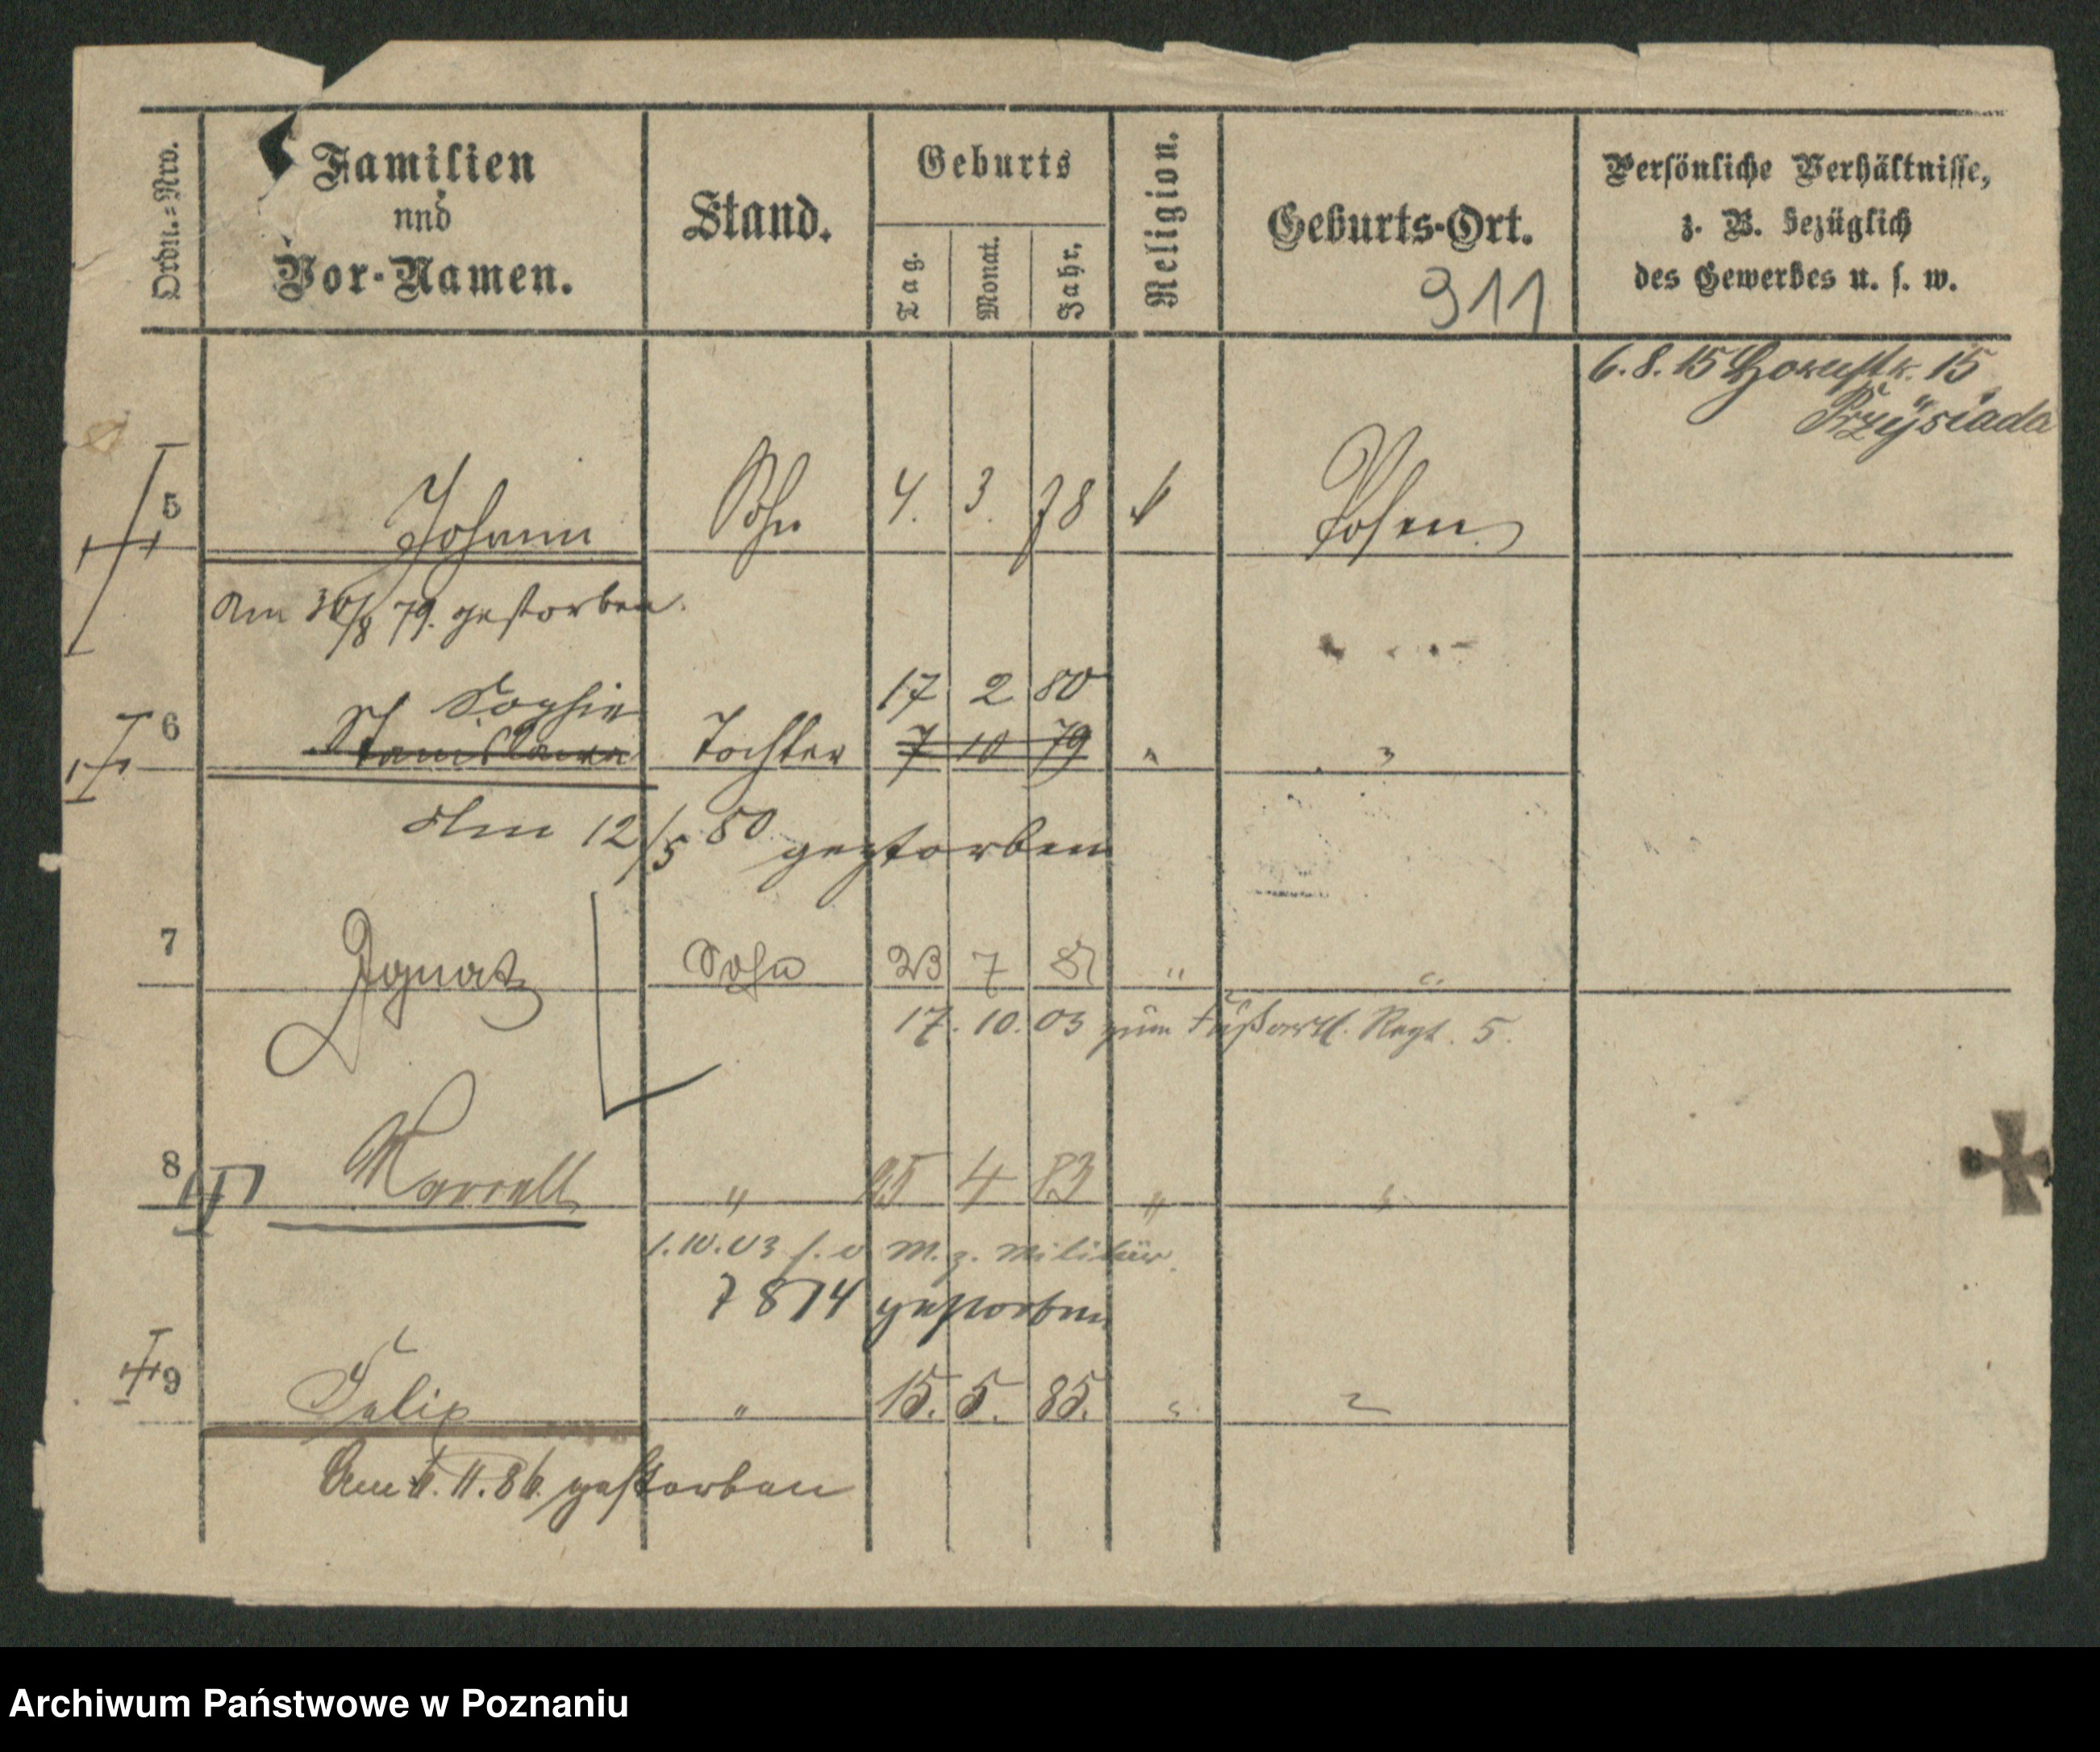 Ordn.-Nro.
Familien
und
Vor-Namen.
Stand.
Geburts
Tag.
Monat.
Jahr.
Religion.
Geburts-Ort.
Persönliche Verhältnisse,
z. B. bezüglich
des Gewerbes u. s. w.
911
6. 8. 15 15
Przÿsiada
5 Johann Sohn 4. 3. 78 k Posen
Am 30/8 79. gestorben.
Sophie 17 2 80
6 Stanislawa Tochter 7 10 79 " "
Am 12/5 80 gestorben
7 Ignatz Sohn 23 7 81 " "
17. 10. 03 zum Fußartl. Regt. 5.
8 Marcell " 25 4 83 " "
1. 10. 03 f. u M. z. Militär.
7 8 14 gestorben
9 Felix " 15. 5. 85. " "
Am 6. 11. 86. gestorben
Archiwum Państwowe w Poznaniu